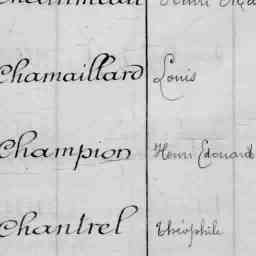 Chamaillard Louis
Champion Henri Edouard
Chantrel Théophile